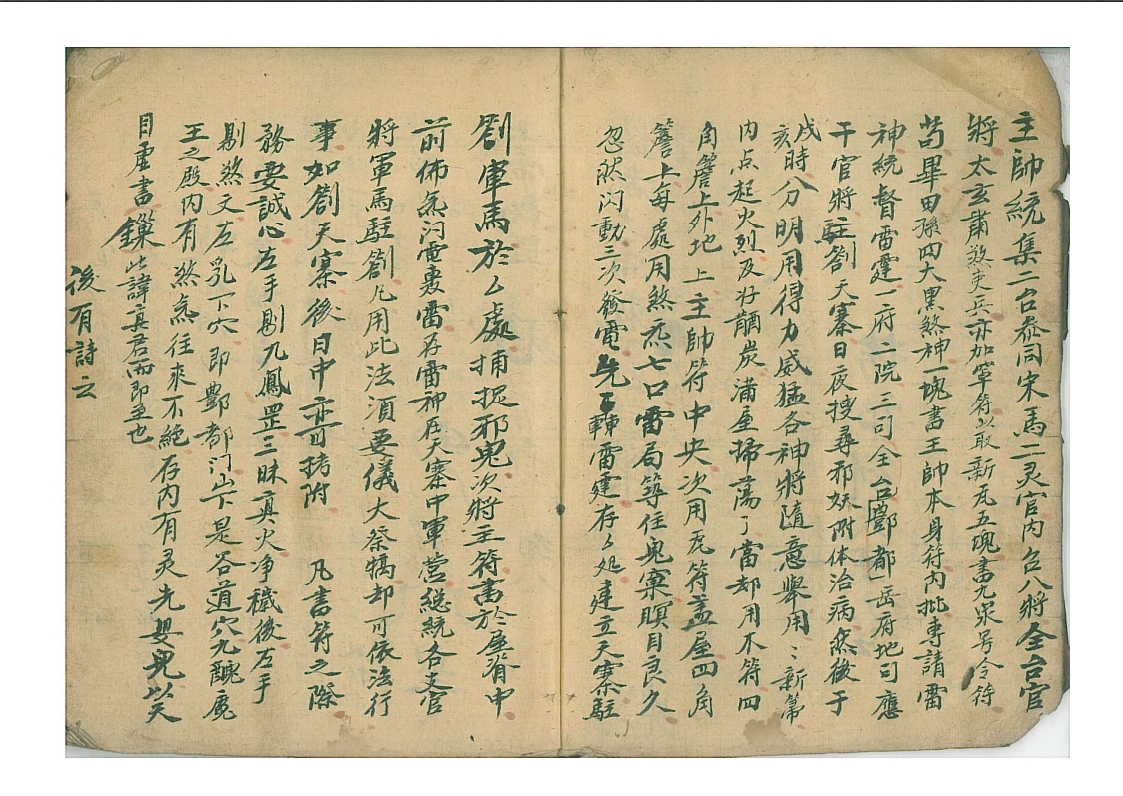 主帥統集二台叅同宋馬二灵官內台八將全台官
將太玄肅煞吏兵亦加筆符以取新瓦五塊書九泉号令符
苟畢田孫四大黑煞神一塊書王帥本身符內批專請雷
神統督雷霆一府二院三司全台酆都一岳府地司應
干官將駐劄天寨日夜搜尋邪妖附体治病然後于
戌亥時分明用得力威猛各神將隨意舉用：新箒
內点起火烈及好醋炭滿屋掃蕩了當却用木符四
角簷上外地上主帥符中央次用瓦符盖屋四角
簷上每處用煞炁七口雷局等住鬼窠瞑目良久
忽然闪動三次發電先轟雷霆存厶处建立天寨駐
劄軍馬於厶處捕捉邪鬼次將主符書於屋脊中
前佈炁闪電裹雷存雷神在天寨中軍营総統各支官
將軍馬駐劄凢用此法湏要儀大祭犒却可依法行
事如劄天寨後日中亦可拷附 凡書符之際
務要誠心左手剔九鳳罡三昧真火净穢後左手
剔煞文左乳下穴即酆都门山下是谷道穴九醜魔
王之殿內有煞炁往來不絶存內有灵光嬰兒以天
目虛書鏁此諱真君而即至也
後有詩云